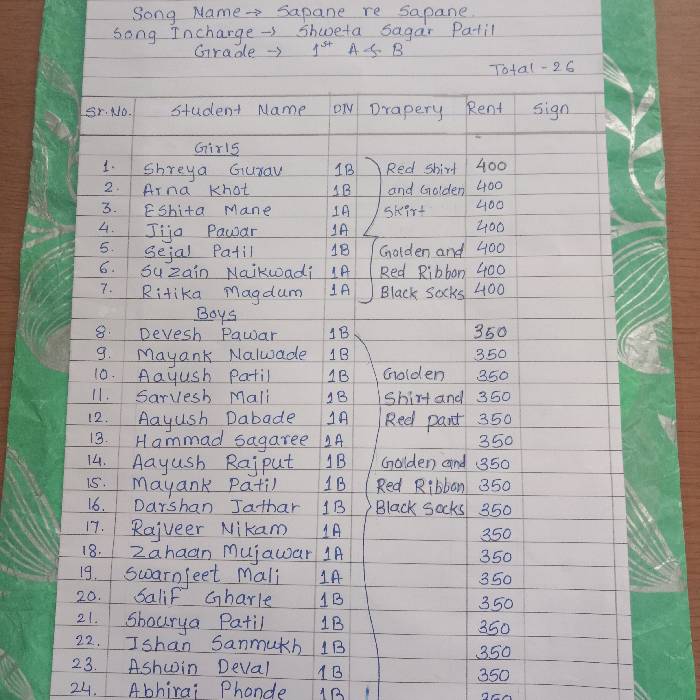 Song Name → Sapane re Sapane.
Song Incharge → Shweta Sagar Patil
Grade → 1st A & B
Total - 26
Sr.No. Student Name DIV Drapery Rent Sign
Girls
1. Shreya Gurav 1B Red Shirt 400
2. Arna Khot 1B and Golden 400
3. Eshita Mane 1A Skirt 400
4. Jija Pawar 1A 400
5. Sejal Patil 1B Golden and 400
6. Suzain Naikwadi 1A Red Ribbon 400
7. Ritika Magdum 1A Black Socks 400
Boys
8. Devesh Pawar 1B 350
9. Mayank Nalwade 1B 350
10. Aayush Patil 1B Golden 350
11. Sarvesh Mali 1B Shirt and 350
12. Aayush Dabade 1A Red pant 350
13. Hammad Sagaree 1A 350
14. Aayush Rajput 1B Golden and 350
15. Mayank Patil 1B Red Ribbon 350
16. Darshan Jathar 1B Black Socks 350
17. Rajveer Nikam 1A 350
18. Zahaan Mujawar 1A 350
19. Swarnjeet Mali 1A 350
20. Salif Gharle 1B 350
21. Shourya Patil 1B 350
22. Ishan Sanmukh 1B 350
23. Ashwin Deval 1B 350
24. Abhiraj Phonde 1B 350